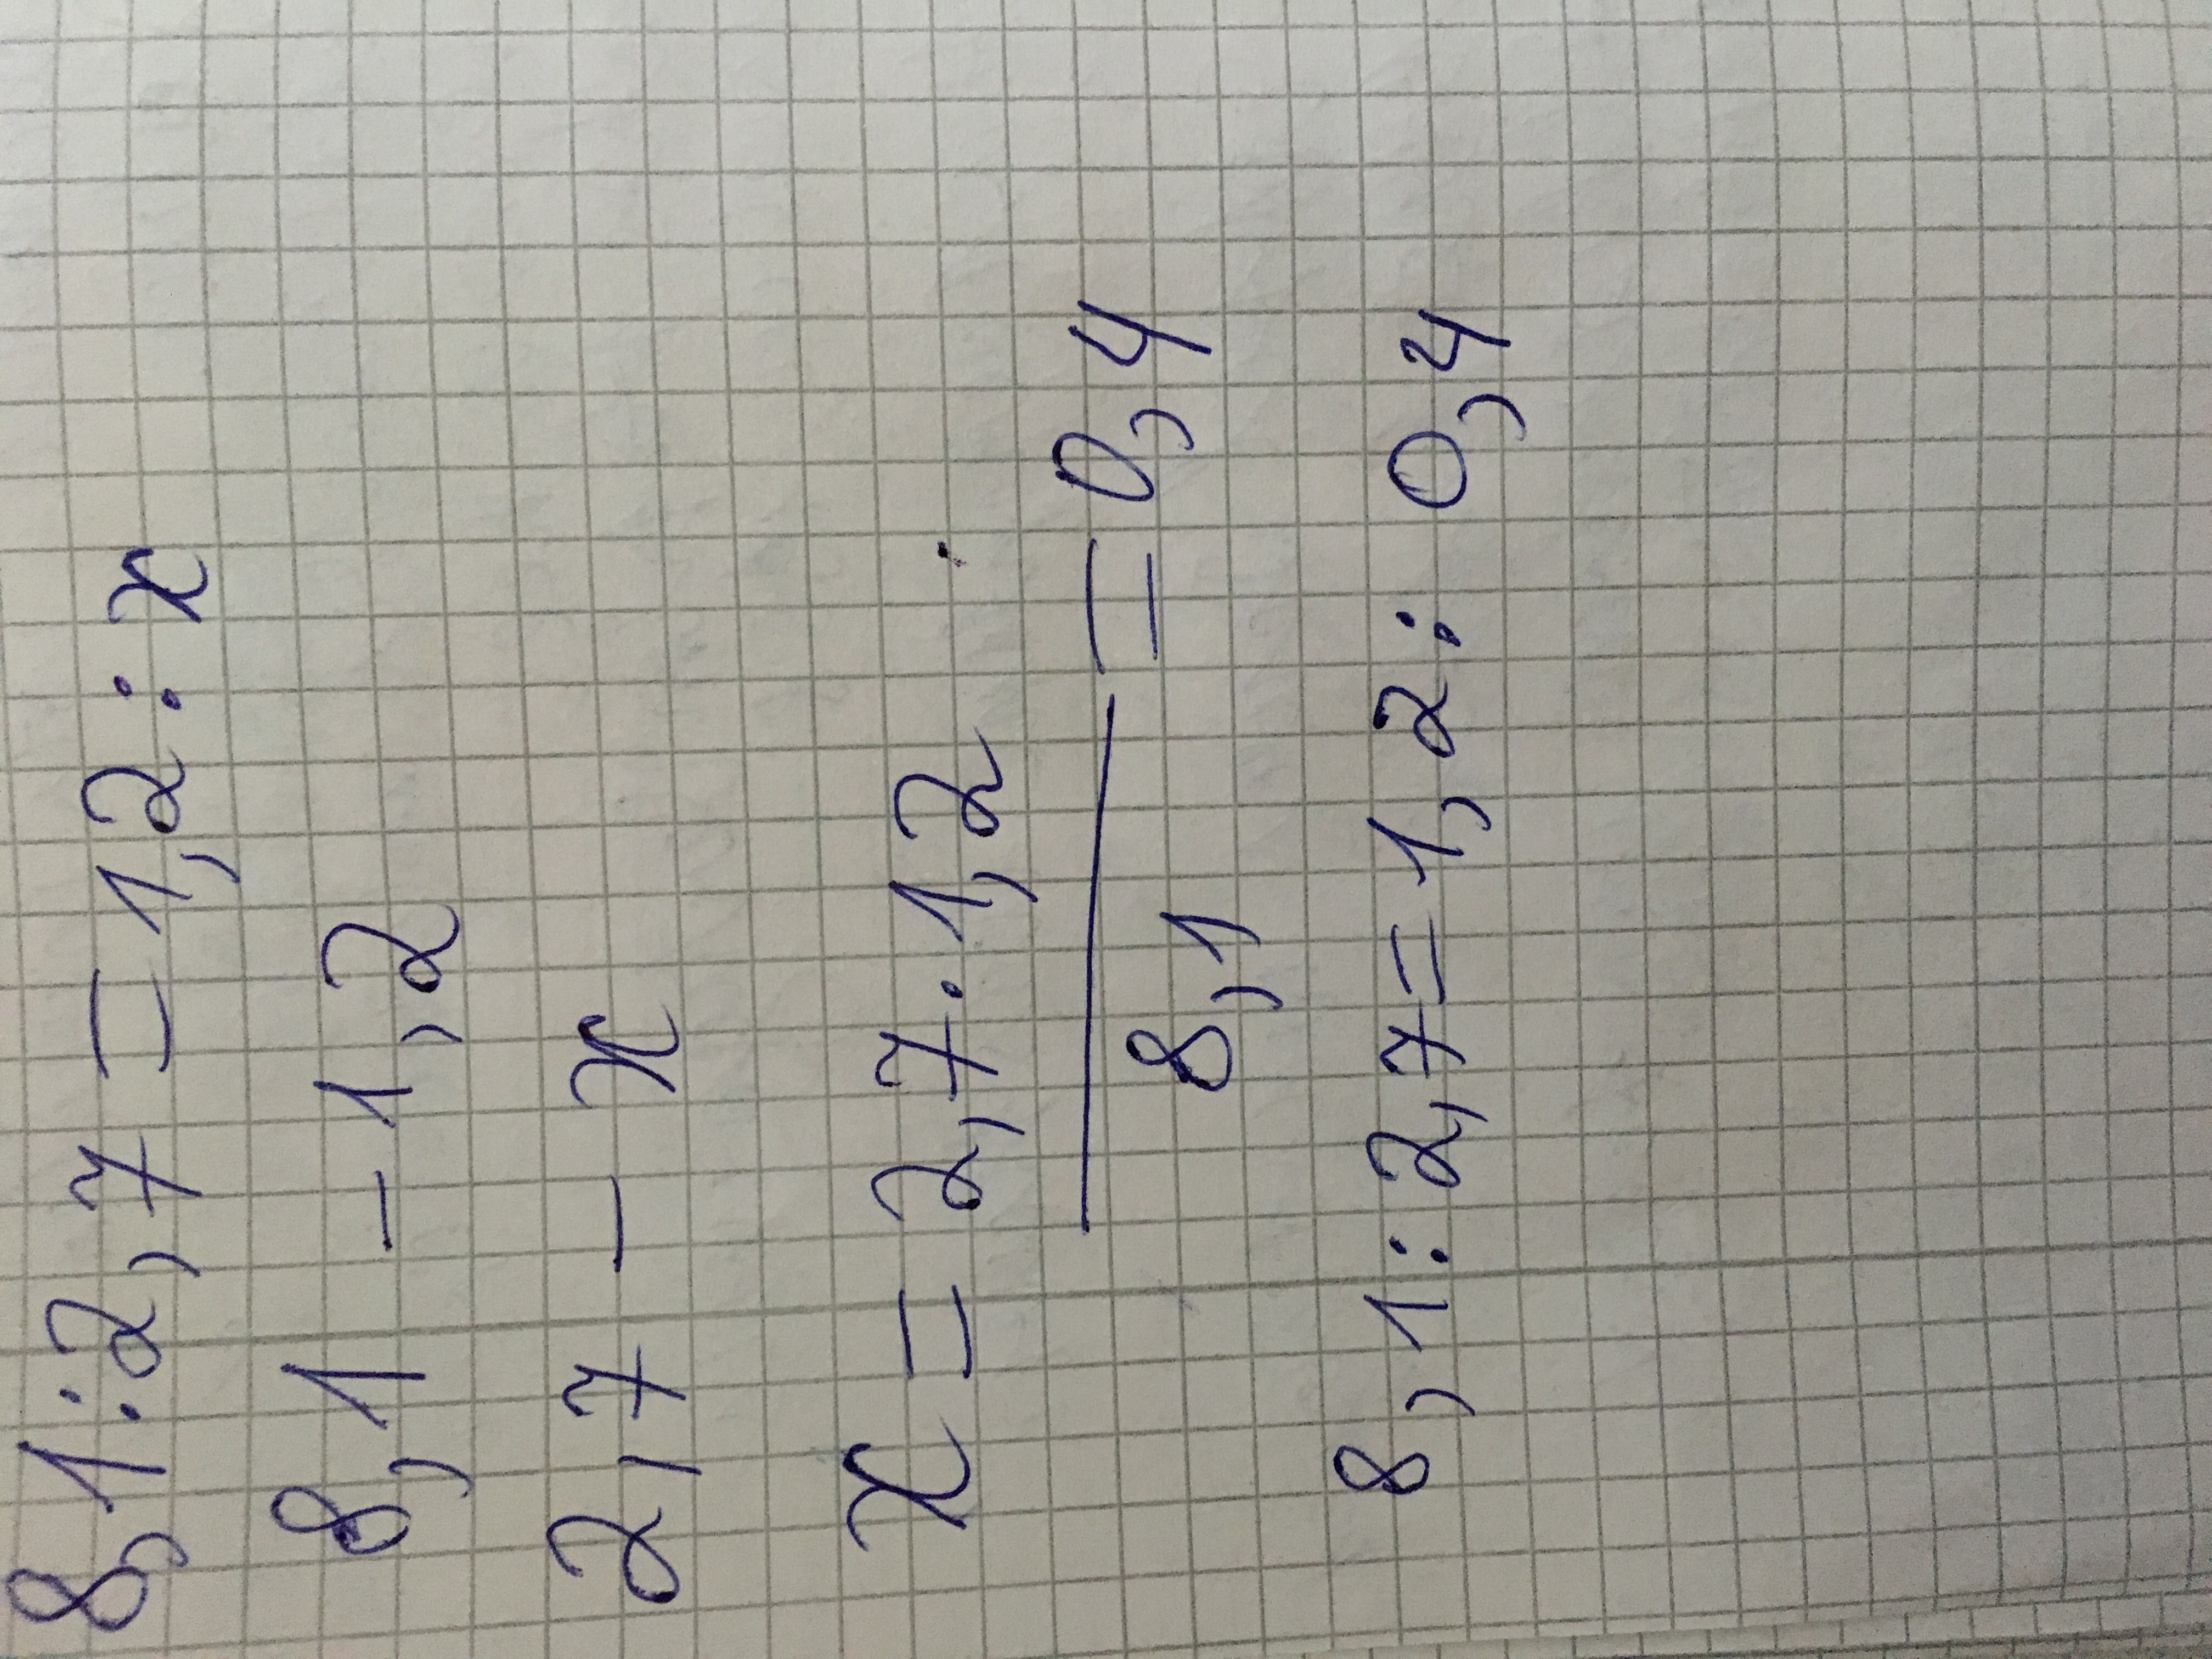 8,1:2,7 = 1,2 : x
8,1 - 1,2
2,7 - x
x = 2,7 · 1,2
= 0,4
8,1
8,1 : 2,7 = 1,2 : 0,4